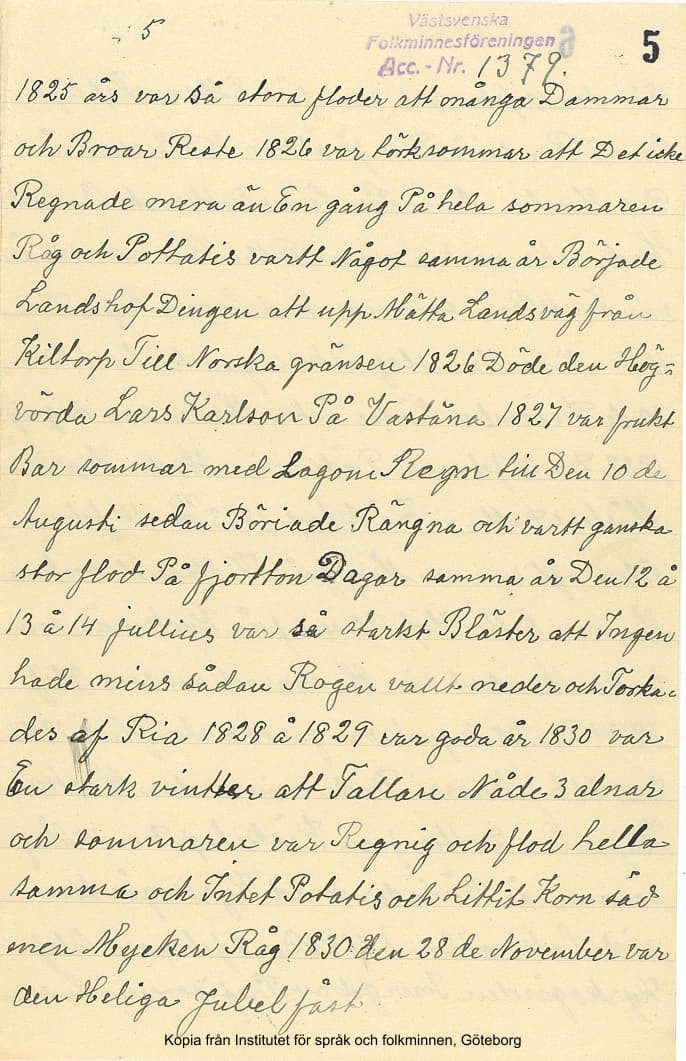 5
Västsvenska
Folkminnesföreningen
Acc. - Nr. 1379.
5
1825 års var så stora floder att många Dammar
och Broar Reste 1826 var törksommar att Det icke
Regnade mera än En gång På hela sommaren
Råg och Pottatis vartt Något samma år Började
Landshof Dingen att upp Mätta Landsväg från
Kiltorp Till Norska gränsen 1826 Döde den Hög-
vörda Lars Karlson På Vastäna 1827 var frukt
Bar sommar med Lagom Regn till Den 10 de
Augusti sedan Böriade Rängna och vartt ganska
stor flod På fjortton Dagar samma år Den 12 å
13 å 14 jullius var så starkt Bläster att Ingen
hade mins sådan Rogen vallt neder och Torka-
des af Ria 1828 å 1829 var goda år 1830 var
En stark vintter att Tallare Nåde 3 alnar
och sommaren var Regnig och flod hella
samma och Intet Potatis och Littit Korn säd
men Mycken Råg 1830 den 28 de November var
den Heliga Jubel fäst
Kopia från Institutet för språk och folkminnen, Göteborg